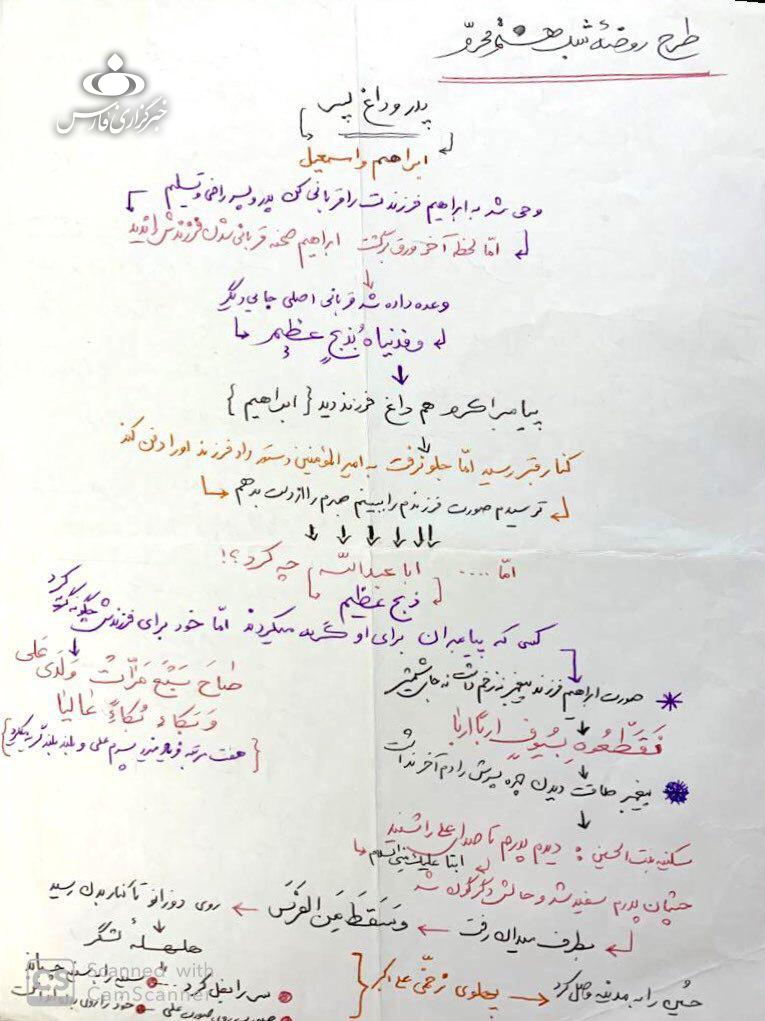 طرح روضهٔ شب هشتم محرّم
خبرگزاری فارس
پدر و داغ پسر
ابراهیم و اسمعیل
وحی شد به ابراهیم فرزندت را قربانی کن پدر و پسر راضی و تسلیم
امّا لحظه آخر ورق برگشت ابراهیم صحنه قربانی شدن فرزندش را ندید
وعده داده شد قربانی اصلی جایی دیگر
و فدیناهُ بذبحٍ عظیم
پیامبر اکرم هم داغ فرزند دید {ابراهیم}
کنار قبر رسید امّا جلو نرفت به امیرالمؤمنین دستور داد فرزند او را دفن کند
ترسیدم صورت فرزندم را ببینم صبرم را از دست بدهم
امّا .... ابا عبدالله چه کرد؟!
ذبح عظیم
کسی که پیامبران برای او گریه میکردند امّا خود برای فرزندش چگونه گریه کرد
صورت ابراهیم فرزند پیغمبر نه زخم داشت نه جای شمشیر
فَقَطَّعوهُ بِسُیوفِ ارباً اربا
پیغمبر طاقت دیدن چهره پسرش را دم آخر نداشت
صاحَ سَبْعَ مَرّاتٍ وَلَدی عَلی
وَ بَکاءَ بُکاءً عالیا
{هفت مرتبه فریاد میزد پسرم علی و بلند بلند گریه میکرد}
سکینه بنت الحسین: دیدم پدرم تا صدای علی را شنید
ابتا علیک منی السلام
چشمان پدرم سفید شد و حالش دگرگون شد
بطرف میدان رفت
وَ سَقَطَ عَنِ الفَرَس
روی دو زانو تا کنار بدن رسید
هلهلهٔ لشگر
حسین را به مدینه وصل کرد
پهلوی زخمی علی اکبر
سر را بغل کرد
صورت روی صورت علی
خود را روی بدن انداخت
CS Scanned with
CamScanner